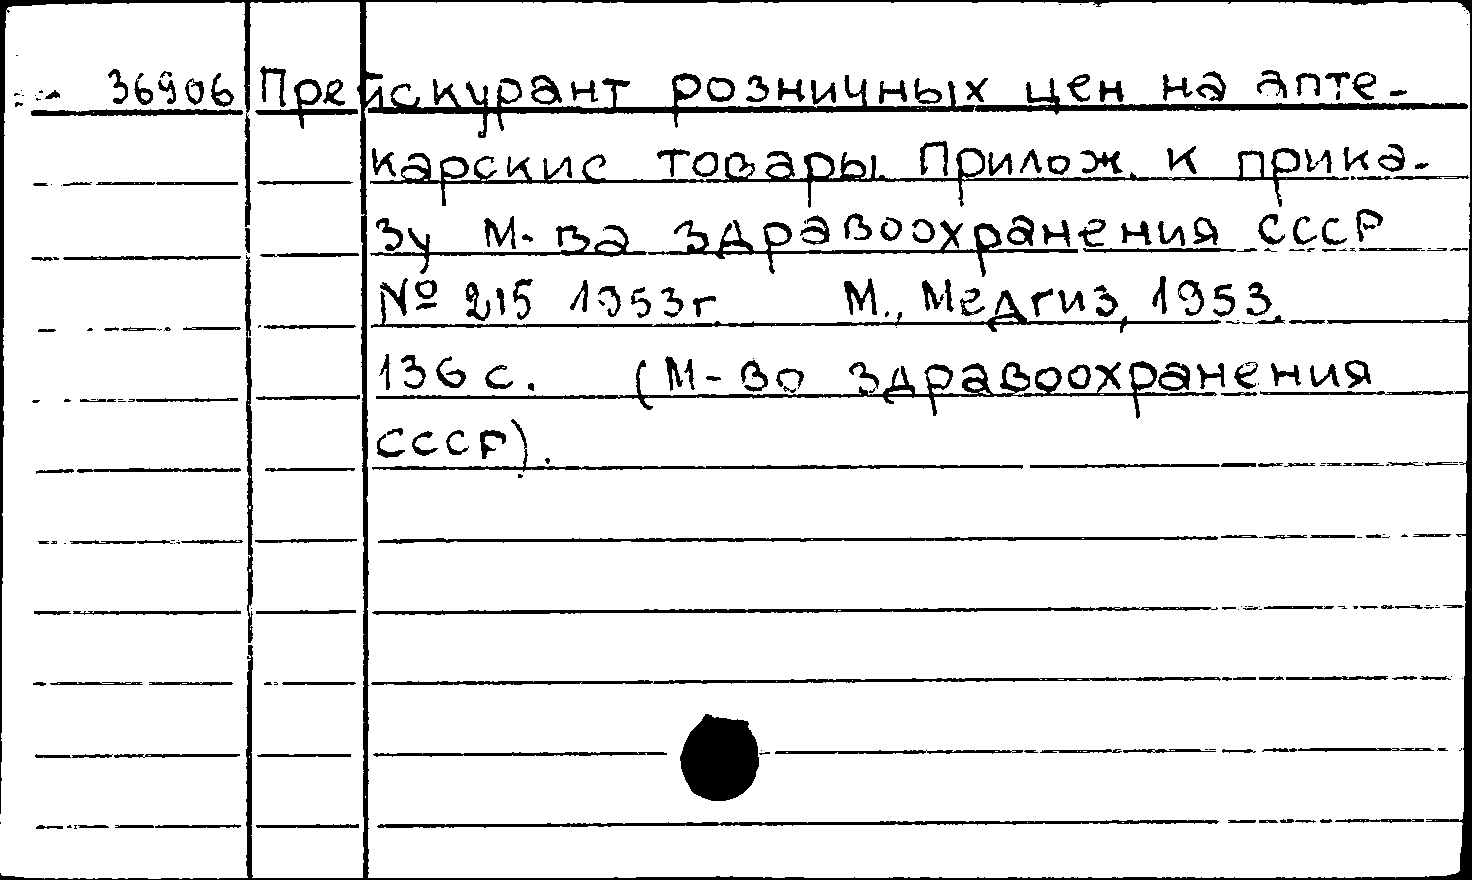 36906 Прейскурант розничных цен на апте-
карские товары. Прилож. к прика-
зу М-ва здравоохранения СССР
№ 215 1953г. М., Медгиз, 1953.
136 с. (М-во здравоохранения
СССР).